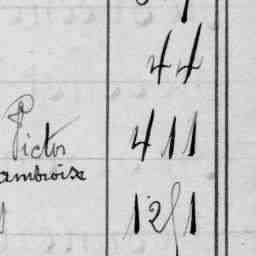 44
Victor 411
ambroise
1251